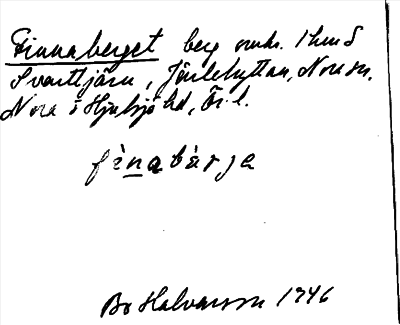 Finnaberget berg omkr. 1 km S
Svarttjärn, Järlehyttan, Nora sn.
Nora o Hjulsjö hd, Ör. l.
fìnabàrja
Bo Halvarson 1946